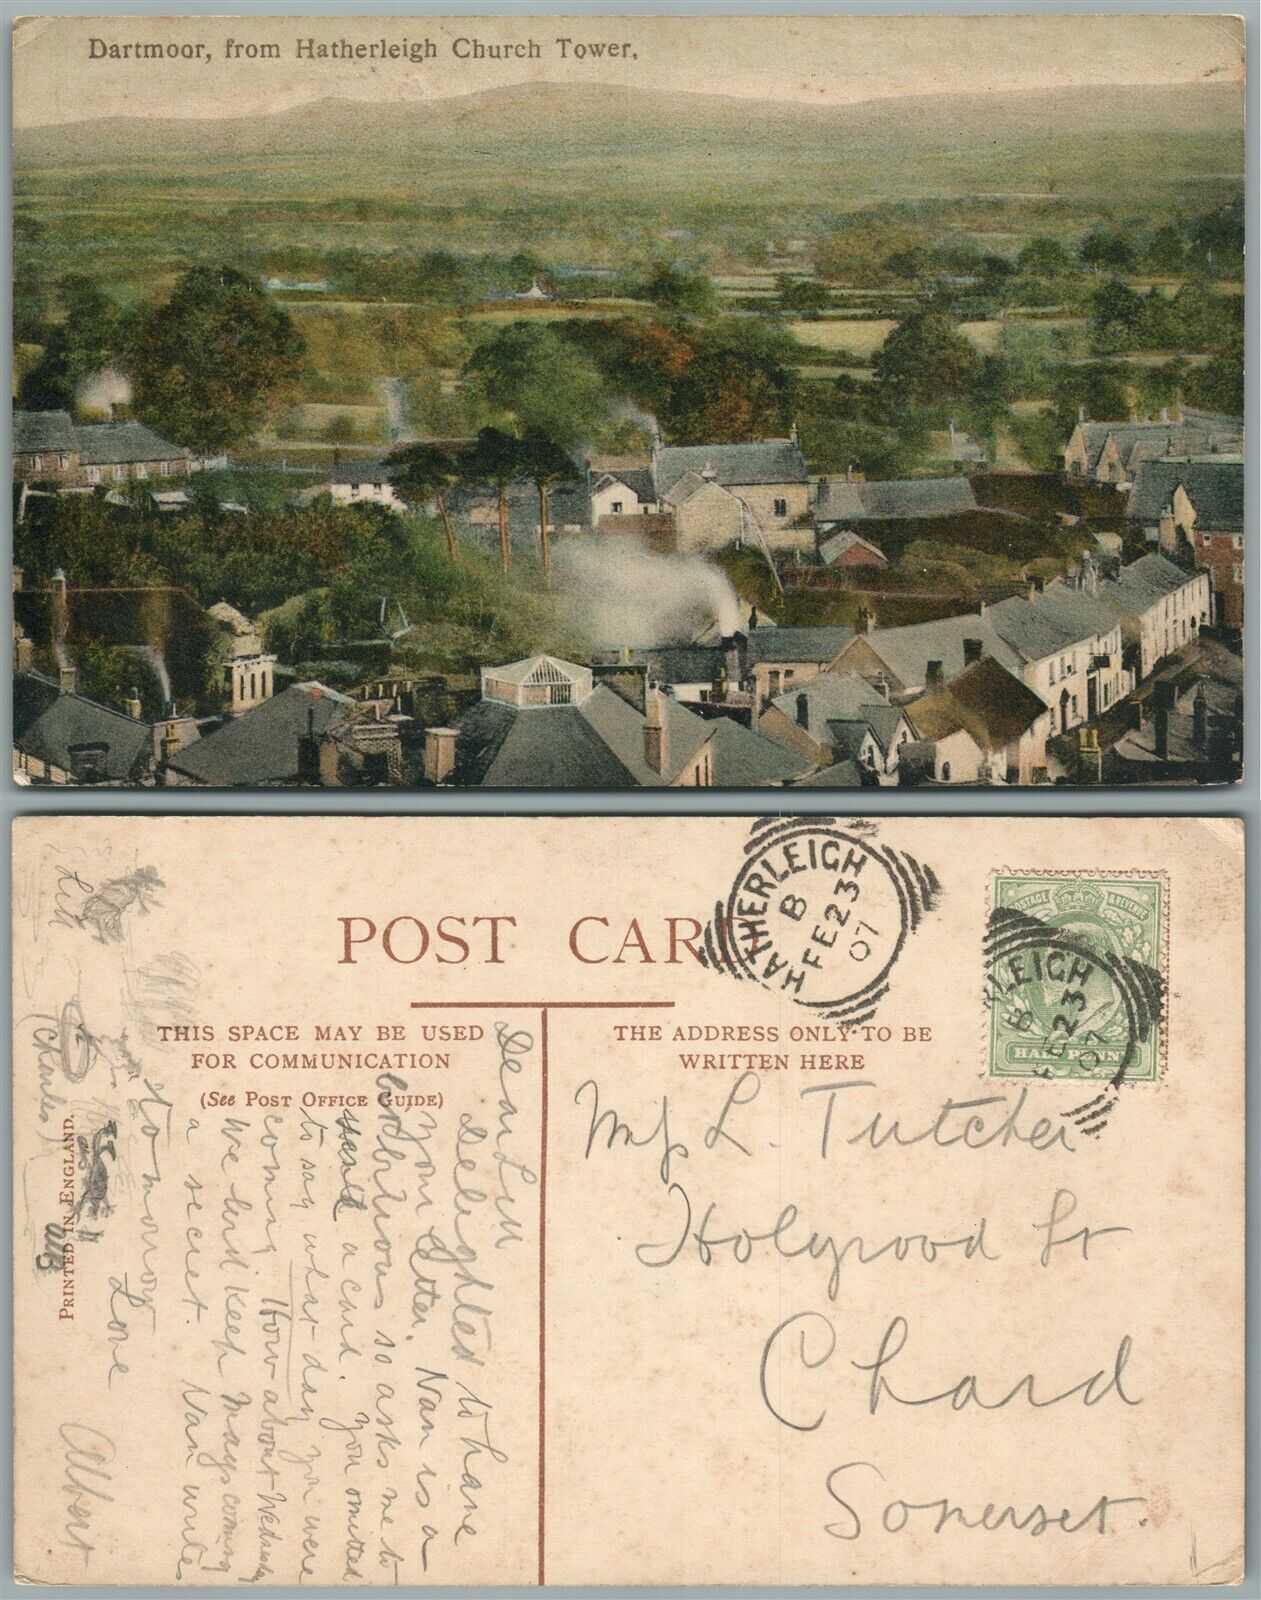 Dartmoor, from Hatherleigh Church Tower.
POST CARD
HATHERLEIGH
B
FE 23
07
POSTAGE & REVENUE
HALF PENNY
LEIGH
B
FE 23
07
THIS SPACE MAY BE USED
FOR COMMUNICATION
(See POST OFFICE GUIDE)
THE ADDRESS ONLY TO BE
WRITTEN HERE
Miss L. Tutcher
Holyrood St
Chard
Somerset.
Dear Lill
Delighted to have
your letter. Nan is a
so asks me to
send a card. You omitted
to say what day you were
coming How about Wednesday
We will keep Mays coming
a secret. Nan writes
to morrow
Love
Albert
(Charles)
PRINTED IN ENGLAND.